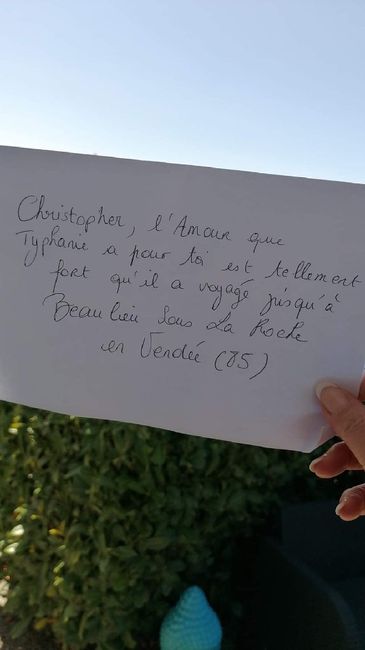 Christopher, l'Amour que
Typhanie a pour toi est tellement
fort qu'il a voyagé jusqu'à
Beaulieu sous La Roche
en Vendée (85)